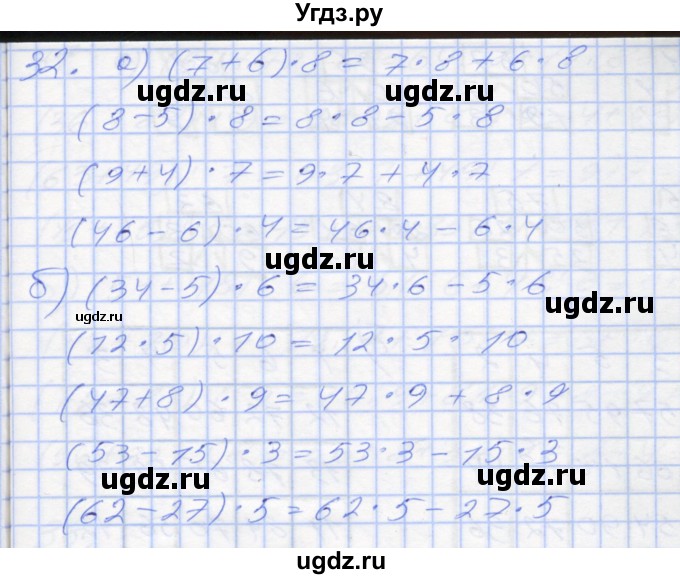 Угдз.ру
32. а) (7+6)·8 = 7·8+6·8
ugdz.ru ugdz.ru
(8-5)·8=8·8-5·8
(9+4)·7=9·7+4·7
(46-6)·4=46·4-6·4
ugdz.ru
б) (34-5)·6=34·6-5·6
ugdz.ru
ugdz.ru
(12·5)·10=12·5·10
ugdz.ru
(47+8)·9=47·9+8·9
(53-15)·3=53·3-15·3
ugdz.ru ugdz.ru
(62-27)·5=62·5-27·5
ugdz.ru